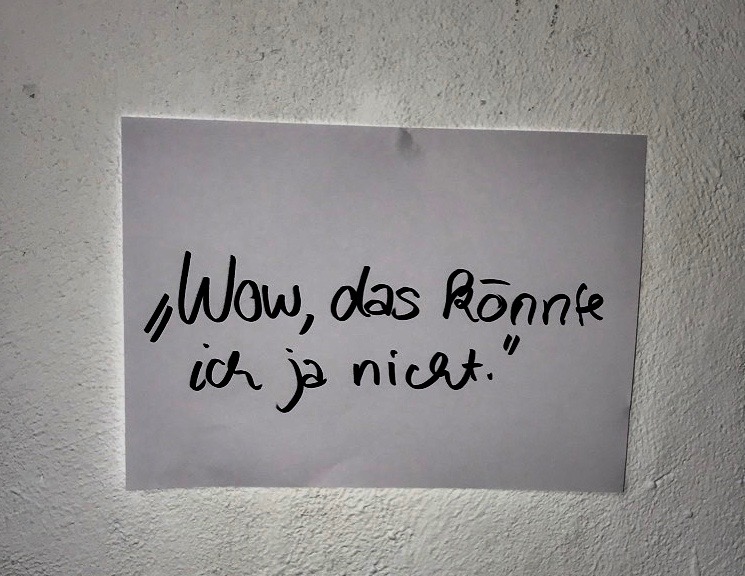 „Wow, das könnte
ich ja nicht."